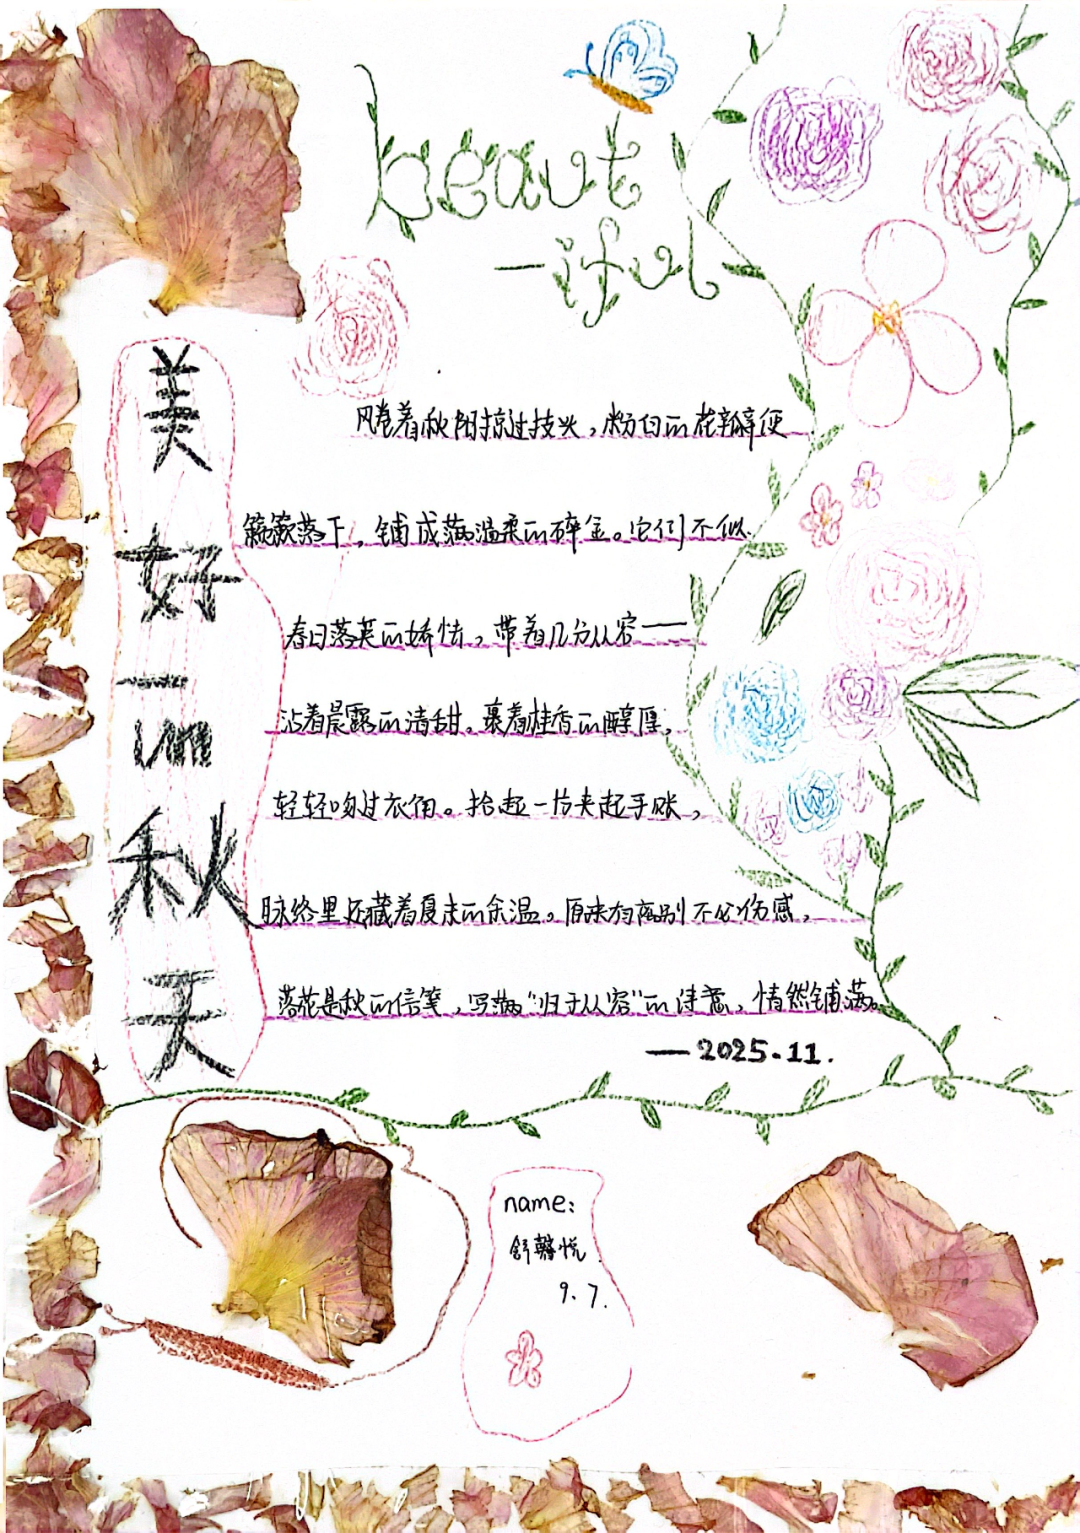 beaut
-iful
美好的秋天
风卷着秋阳掠过技头,粉白的花瓣便
簌簌落下,铺成满温柔的碎金。它们不似
春日落英的娇怯,带着几分从容——
沾着晨露的清甜。裹着桂香的醇厚,
轻轻吻过衣角。拾起一片夹起手账,
脉络里还藏着夏末的余温。原来有离别不必伤感,
落花是秋的信笺,写满"归于从容"的诗意,悄然铺满。
—2025.11.
name:
舒馨悦
9.7.